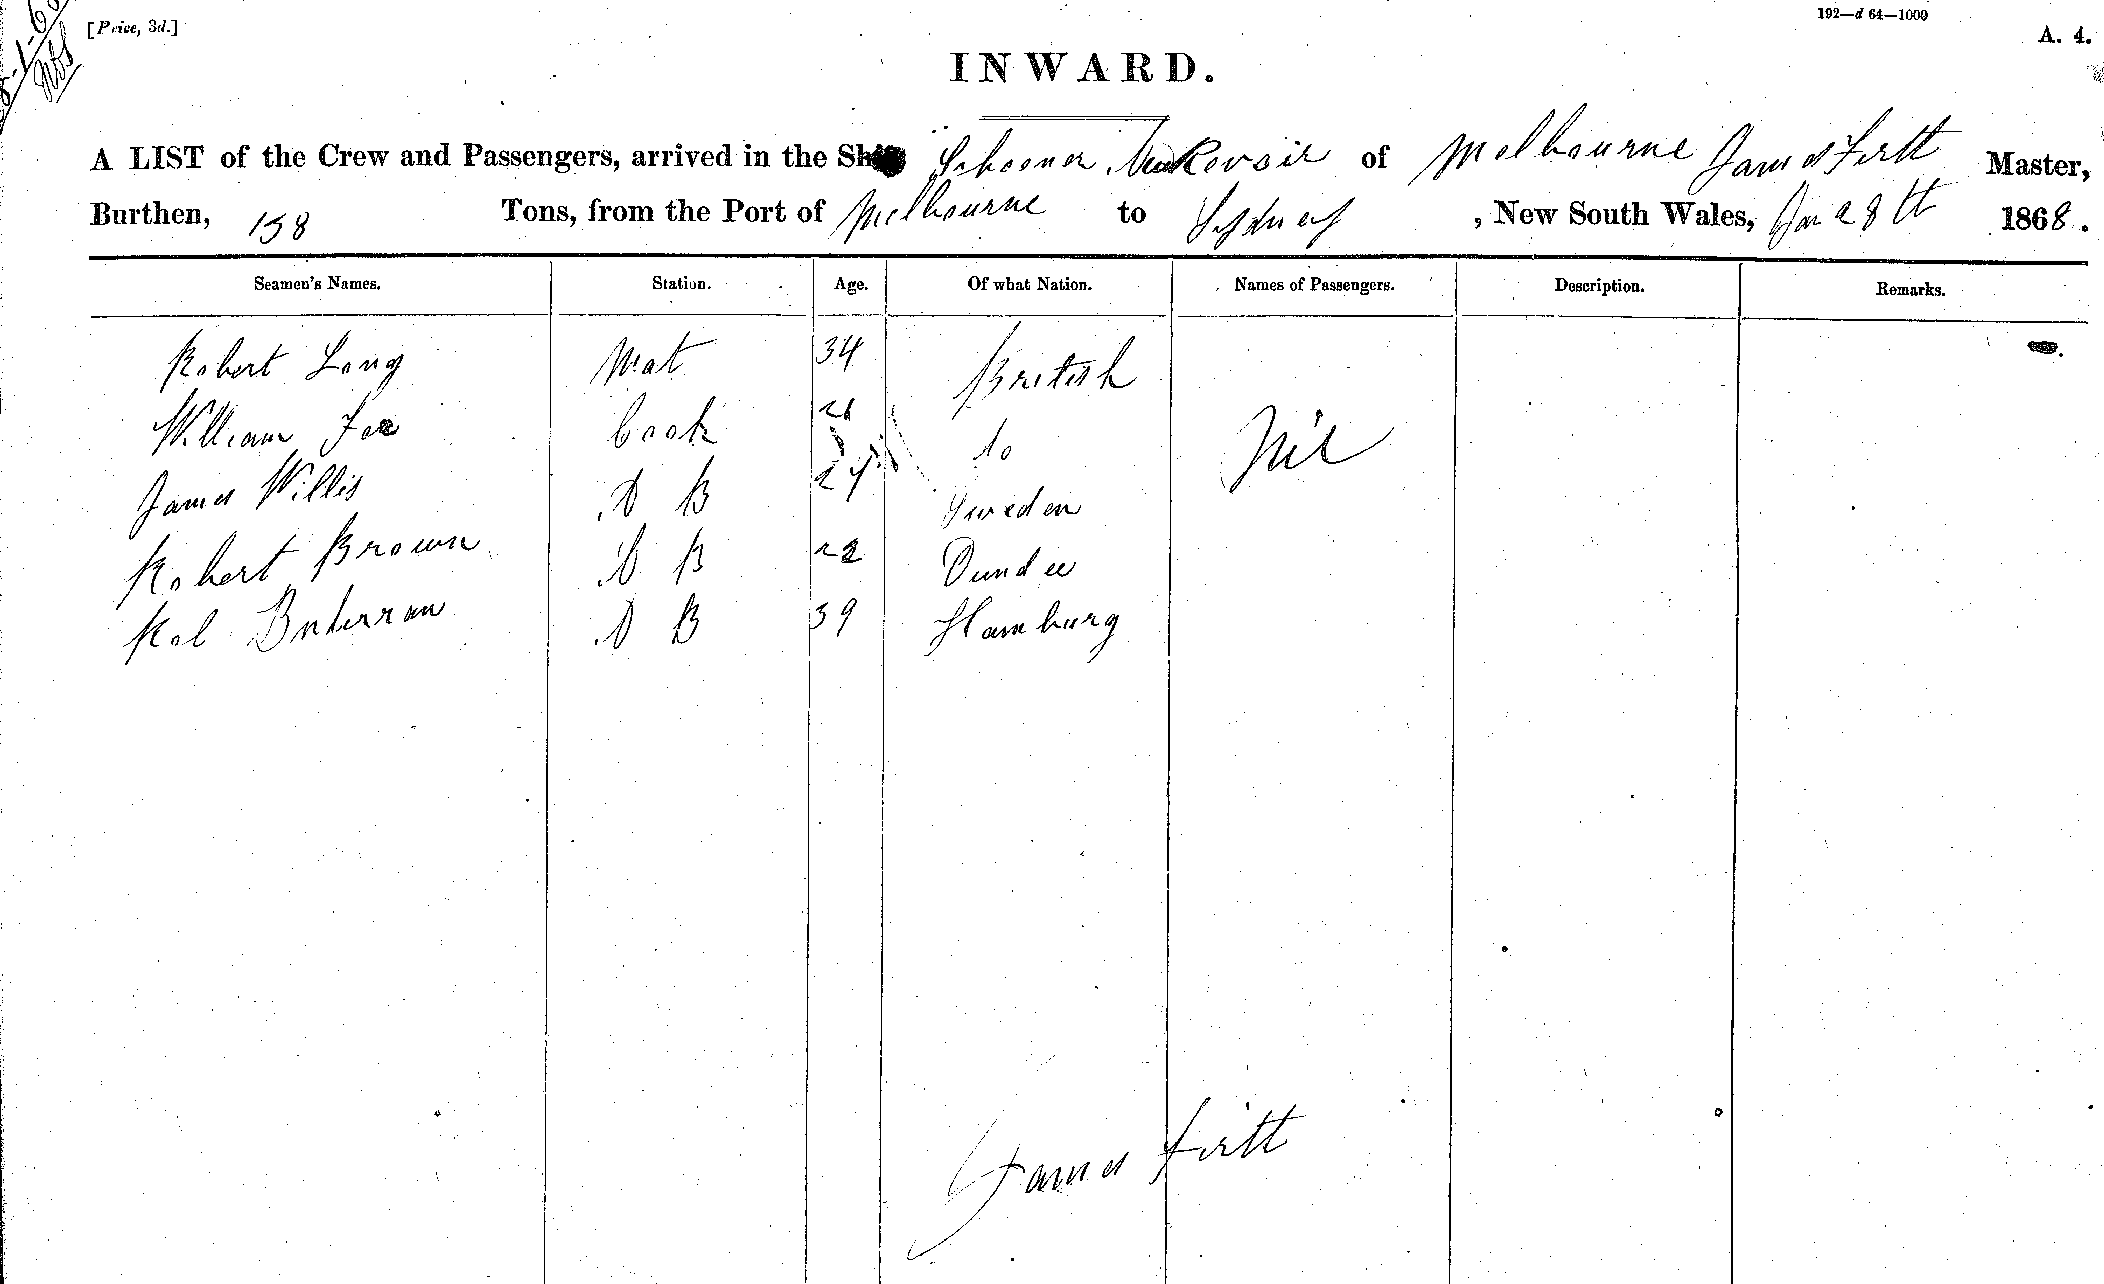 [Price, 3d.]
192—d 64—1000
A. 4.
INWARD.
A LIST of the Crew and Passengers, arrived in the Ship Schooner of Melbourne James Firtt Master,
Burthen, 158 Tons, from the Port of Melbourne to Sydney , New South Wales, Jan 28th 1868.
Seamen's Names. Station. Age. Of what Nation. Names of Passengers. Description. Remarks.
Robert Long Mat 34 British
William Cook do Nil
James Willis A B 24 Sweden
Robert Brown A B 22 Dundee
A B 39 Hamburg
James Firtt